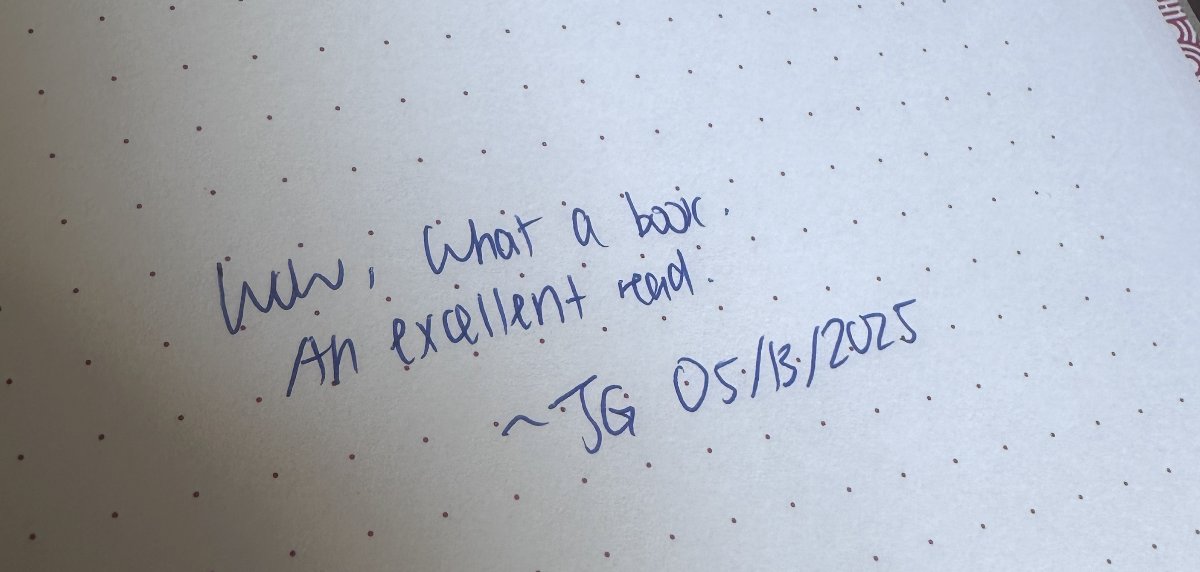 Wow, What a book.
An excellent read.
~JG 05/13/2025